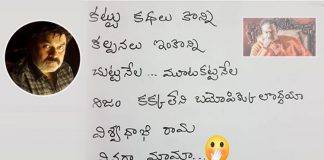 కట్టు కథలు కొన్ని
కల్పనలు ఇంకొన్ని
చుట్టనేల... మూటకట్టనేల
నిజం కక్కలేని బయోపిక్కులొద్దయా
విశ్వదాభి రామ
వినరా మామా...